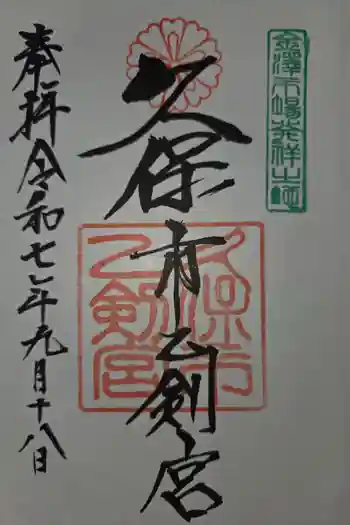 金澤市場発祥之地
久保市乙剣宮
久保市乙剣宮
奉拝令和七年九月十八日